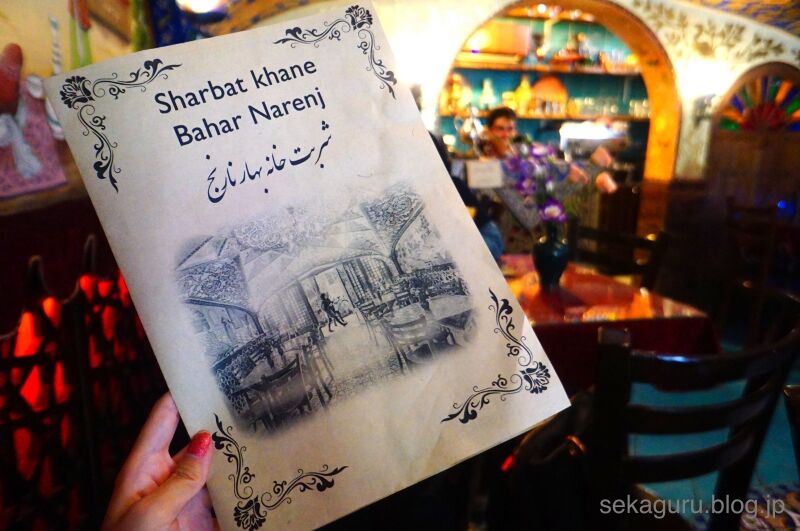 Sharbat khane
Bahar Narenj
شربت خانه بهار نارنج
sekaguru.blog.jp